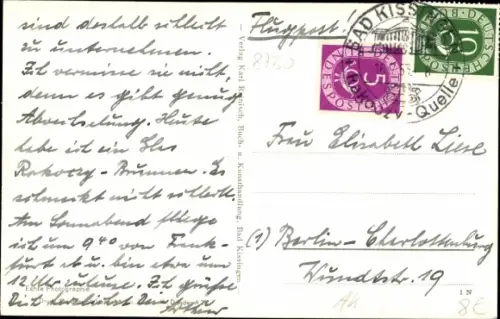 sind deshalb schlecht
zu unternehmen.
Ich vermisse sie nicht,
denn es gibt genug
Abwechslung. Heute
lebe ich ein Glas
Rakoczy-Brunnen. Es
schmeckt nicht schlecht.
Am Sonnabend fliege
ich um 9 40 von Frank-
furt ab u. bin etwa um
12 Uhr zuhause. Ich grüße
Dich herzlichst Dein Arthur
Echte Photographie
Verlag Karl Ränisch, Buch- u. Kunsthandlung, Bad Kissingen.
Flugpost.
8730
BAD KISSINGEN
RAKOCZY-Quelle
5
DEUTSCHE BUNDESPOST
10
DEUTSCHE BUNDESPOST
Frau Elisabeth Liese
(1) Berlin-Charlottenburg
Wundtstr. 19
8€